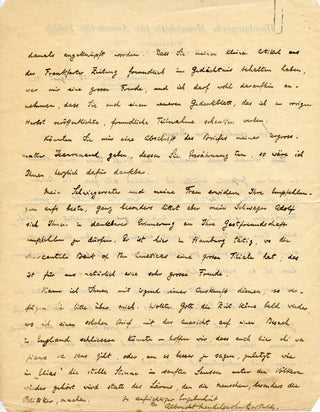 damals angeknüpft worden. Dass Sie meinen kleinen Artikel aus
der Frankfurter Zeitung freundlich im Gedächtnis behalten haben,
war mir eine grosse Freude, und ich darf wohl daraufhin an-
nehmen, dass Sie auch einem neueren Gedenkblatt, das ich im vorigen
Herbst veröffentlichte, freundliche Teilnahme schenken werden.
Könnten Sie mir eine Abschrift des Briefes meiner Urgross-
mutter geben, dessen Sie Erwähnung tun, so wäre ich
Ihnen herzlich dafür dankbar.
Mein Schwiegervater und meine Frau erwidern Ihre Empfehlun-
gen aufs beste, ganz besonders bittet aber mein Schwager Adolf
sich Ihnen in dankbarer Erinnerung an Ihre Gastfreundschaft
empfehlen zu dürfen. Er ist hier in Hamburg tätig, wo die
Mercantile Bank of the Americas eine grosse Filiale hat, das
ist für uns natürlich eine sehr grosse Freude.
Kann ich Ihnen mit irgend einer Auskunft dienen, so ver-
fügen Sie bitte über mich. Wollte Gott die Zeit käme bald wieder,
wo ich einen solchen Brief mit der Aussicht auf einen Besuch
in England schliessen könnte - hoffen wir, dass auch hier chi va
piano va sano gilt, oder, um es besser zu sagen, zuletzt wie
im Elias die stille Stimme im sanften Sausen unter den Völkern
wieder gehört wird statt des Lärms, den die Menschen, besonders die
Politiker, machen.
In aufrichtiger Ergebenheit
Ihr Albrecht Mendelssohn Bartholdy